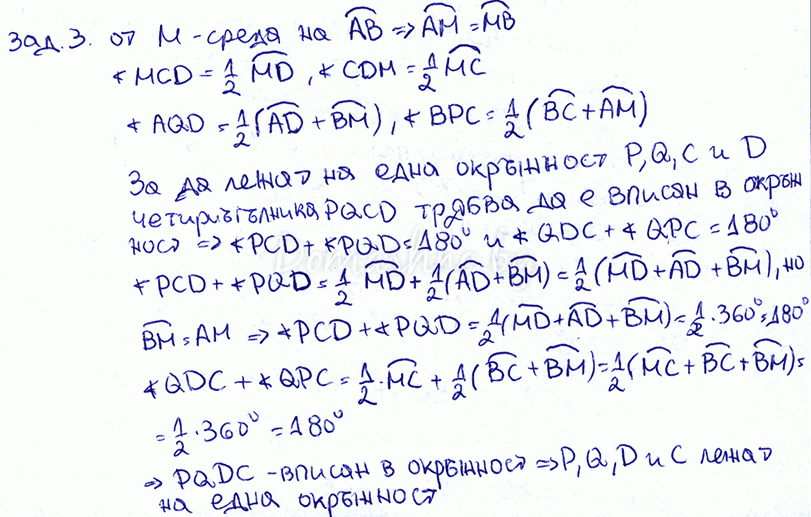 Зад. 3. от M - среда на A͡B => A͡M = M͡B
∢ MCD = 1/2 M͡D, ∢ CDM = 1/2 M͡C
∢ AQD = 1/2 (A͡D + B͡M), ∢ BPC = 1/2 (B͡C + A͡M)
За да лежат на една окръжност P, Q, C и D
четириъгълника PQCD трябва да е вписан в окръж
ност => ∢PCD + ∢PQD = 180° и ∢ QDC + ∢ QPC = 180°
∢PCD + ∢PQD = 1/2 M͡D + 1/2 (A͡D + B͡M) = 1/2 (M͡D + A͡D + B͡M), но
B͡M = AM => ∢PCD + ∢PQD = 1/2 (M͡D + A͡D + B͡M) = 1/2 · 360° = 180°
∢QDC + ∢QPC = 1/2 · M͡C + 1/2 (B͡C + B͡M) = 1/2 (M͡C + B͡C + B͡M) =
= 1/2 · 360° = 180°
=> PQDC - вписан в окръжност => P, Q, D и C лежат
на една окръжност